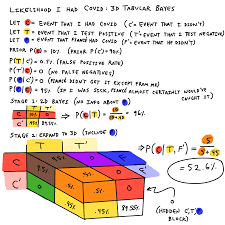 LIKELIHOOD I HAD COVID: 3D TABULAR BAYES
LET C = EVENT THAT I HAD COVID (C' = EVENT THAT I DIDN'T)
LET T = EVENT THAT I TEST POSITIVE (T' = EVENT THAT I TEST NEGATIVE)
LET F = EVENT THAT FIANCÉ HAD COVID (F' = EVENT THAT HE DIDN'T)
PRIOR P(C) = 10% (PRIOR P(C') = 90%)
(FALSE POSITIVE RATE)
(NO FALSE NEGATIVES)
(FIANCÉ DIDN'T GET IT EXCEPT FROM ME)
(IF I WAS SICK, FIANCÉ ALMOST CERTAINLY WOULD'VE
CAUGHT IT)
STAGE 1: 2D BAYES (NO INFO ABOUT F)
T T'
C
C'
= 96%
STAGE 2: EXPAND TO 3D (INCLUDE F)
T T'
C
C'
F
F'
P(C|T,F') =
= 52.6%
(HIDDEN C',T,F
BLOCK)